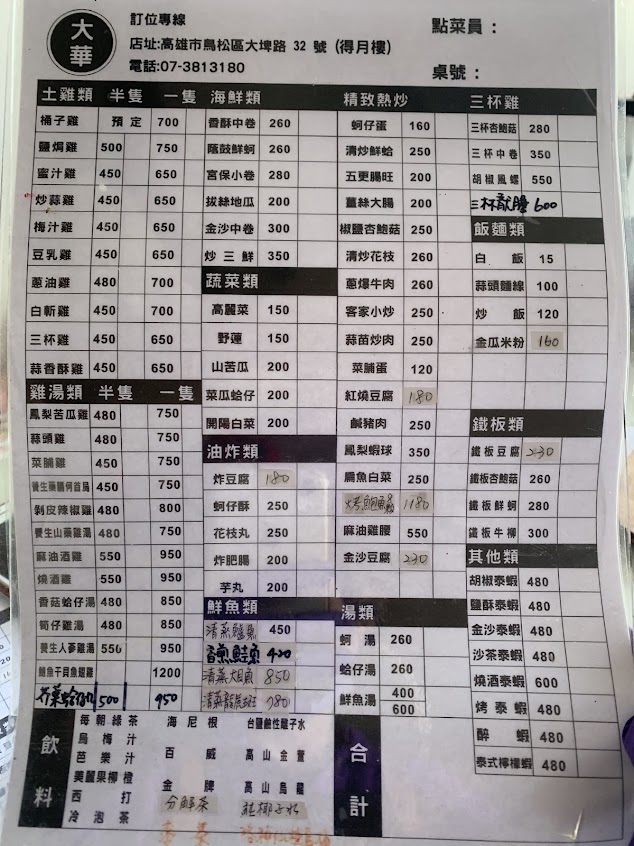 大華
訂位專線
店址:高雄市鳥松區大埤路 32 號 (得月樓)
電話:07-3813180
點菜員：
桌號：
土雞類 半隻 一隻
桶子雞 預定 700
鹽焗雞 500 750
蜜汁雞 450 650
炒蒜雞 450 650
梅汁雞 450 650
豆乳雞 450 650
蔥油雞 480 700
白斬雞 450 700
三杯雞 450 650
蒜香酥雞 450 650
雞湯類 半隻 一隻
鳳梨苦瓜雞 480 750
蒜頭雞 480 750
菜脯雞 450 750
養生藥膳何首烏 450 750
剝皮辣椒雞 480 800
養生山藥雞湯 480 750
麻油酒雞 550 950
燒酒雞 550 950
香菇蛤仔湯 480 850
筍仔雞湯 480 850
養生人蔘雞湯 550 950
鮑魚干貝魚翅雞 1200
500 950
海鮮類
香酥中卷 260
蔭鼓鮮蚵 260
宮保小卷 280
拔絲地瓜 200
金沙中卷 300
炒三鮮 350
蔬菜類
高麗菜 150
野蓮 150
山苦瓜 200
菜瓜蛤仔 200
開陽白菜 200
油炸類
炸豆腐 180
蚵仔酥 250
花枝丸 250
炸肥腸 200
芋丸 200
鮮魚類
清蒸鱸魚 450
香煎鮭魚 420
清蒸大目魚 850
清蒸龍虎斑 780
精致熱炒
蚵仔蛋 160
清炒鮮蛤 250
五更腸旺 200
薑絲大腸 200
椒鹽杏鮑菇 250
清炒花枝 260
蔥爆牛肉 260
客家小炒 250
蒜苗炒肉 250
菜脯蛋 120
紅燒豆腐 180
鹹豬肉 250
鳳梨蝦球 350
扁魚白菜 250
1180
麻油雞腰 550
金沙豆腐 230
湯類
蚵湯 260
蛤仔湯 260
鮮魚湯 400
600
三杯雞
三杯杏鮑菇 280
三杯中卷 350
胡椒風螺 550
三杯 600
飯麵類
白飯 15
蒜頭麵線 100
炒飯 120
金瓜米粉 160
鐵板類
鐵板豆腐 230
鐵板杏鮑菇 260
鐵板鮮蚵 280
鐵板牛柳 300
其他類
胡椒泰蝦 480
鹽酥泰蝦 480
金沙泰蝦 480
沙茶泰蝦 480
燒酒泰蝦 600
烤泰蝦 480
醉蝦 480
泰式檸檬蝦 480
飲料
每朝綠茶 海尼根 台鹽鹼性離子水
烏梅汁
芭樂汁 百威 高山金萱
美麗果柳橙
西打 金牌 高山烏龍
冷泡茶 分解茶 純椰子水
合計